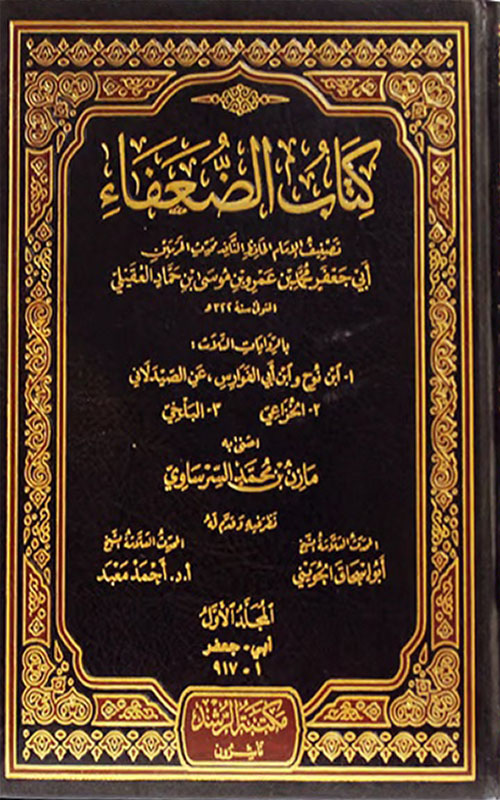 كِتَابُ الضُّعَفَاءِ
تصنيف الإمام الحافظ الناقد محدث الحرمين
أبي جعفر محمد بن عمرو بن موسى بن حماد العقيلي
المتوفى سنة ٣٢٢ هـ
بالروايات الثلاث:
١- ابن نوح وابن أبي الفوارس، عن الصيدلاني
٢- الخزاعي ٣- البلخي
اعتنى به
مازن بن محمد السرساوي
نظر فيه وقدم له
المحدث العلامة الشيخ
أبو إسحاق الحويني
المحدث العلامة الشيخ
أ.د. أحمد معبد
المجلد الأول
أبي - جعفر
١ - ٩١٧
مكتبة الرشد
ناشرون